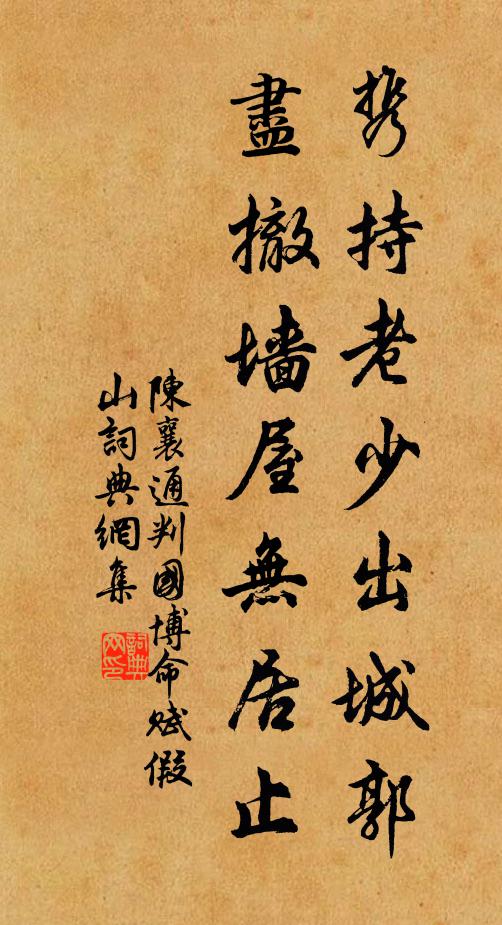 携持老少出城郭
盡撤墙屋無居止
陳襄通判國博命賦假
山詞典網集
詞典
网印